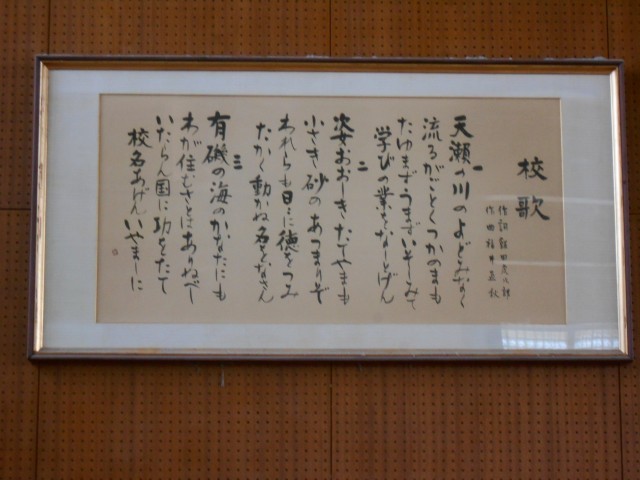 校歌
作詞
作曲
一
天瀬の川のよどみなく
流るがごとくつかのまも
たゆまずうまずいそしみて
学びの業をなしとげん
二
姿おおしきたてやまも
小さき砂のあつまりぞ
われらも日に徳をつみ
たかく動かぬ名をなさん
三
有磯の海のかなたにも
わが住むさとはありぬべし
いたらん国に功をたて
校名あげんいやましに